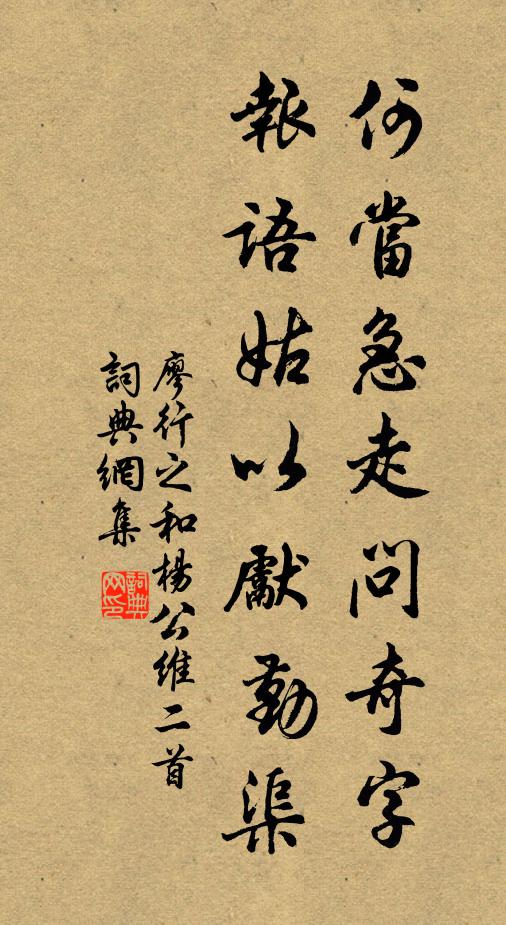 何當急走問奇字
報語姑以獻勤渠
廖行之和楊公維二首
詞典網集
詞典網印